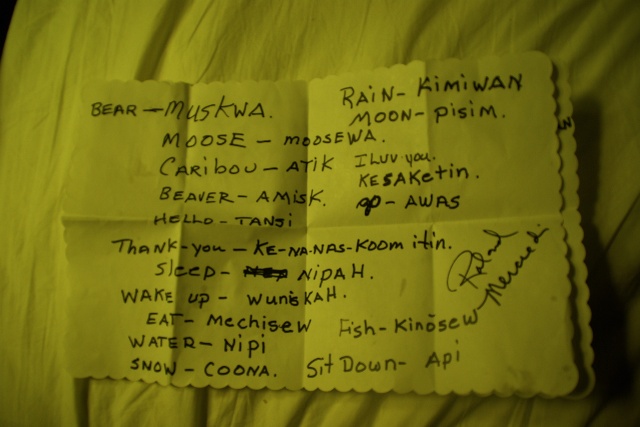 BEAR - MUSKWA.
RAIN - KIMIWAN
MOON - PISIM.
MOOSE - MOOSEWA.
CARIBOU - ATIK
I LUV you.
KESAKETIN.
BEAVER - AMISK.
go - AWAS
HELLO - TANJI
THANK-you - KE-NA-NAS-KOOM itin.
Sleep - NIPAH.
WAKE up - wuniskAH.
EAT - MechiseW
Fish - Kinōsew
WATER - Nipi
SNOW - COONA.
Sit Down - Api